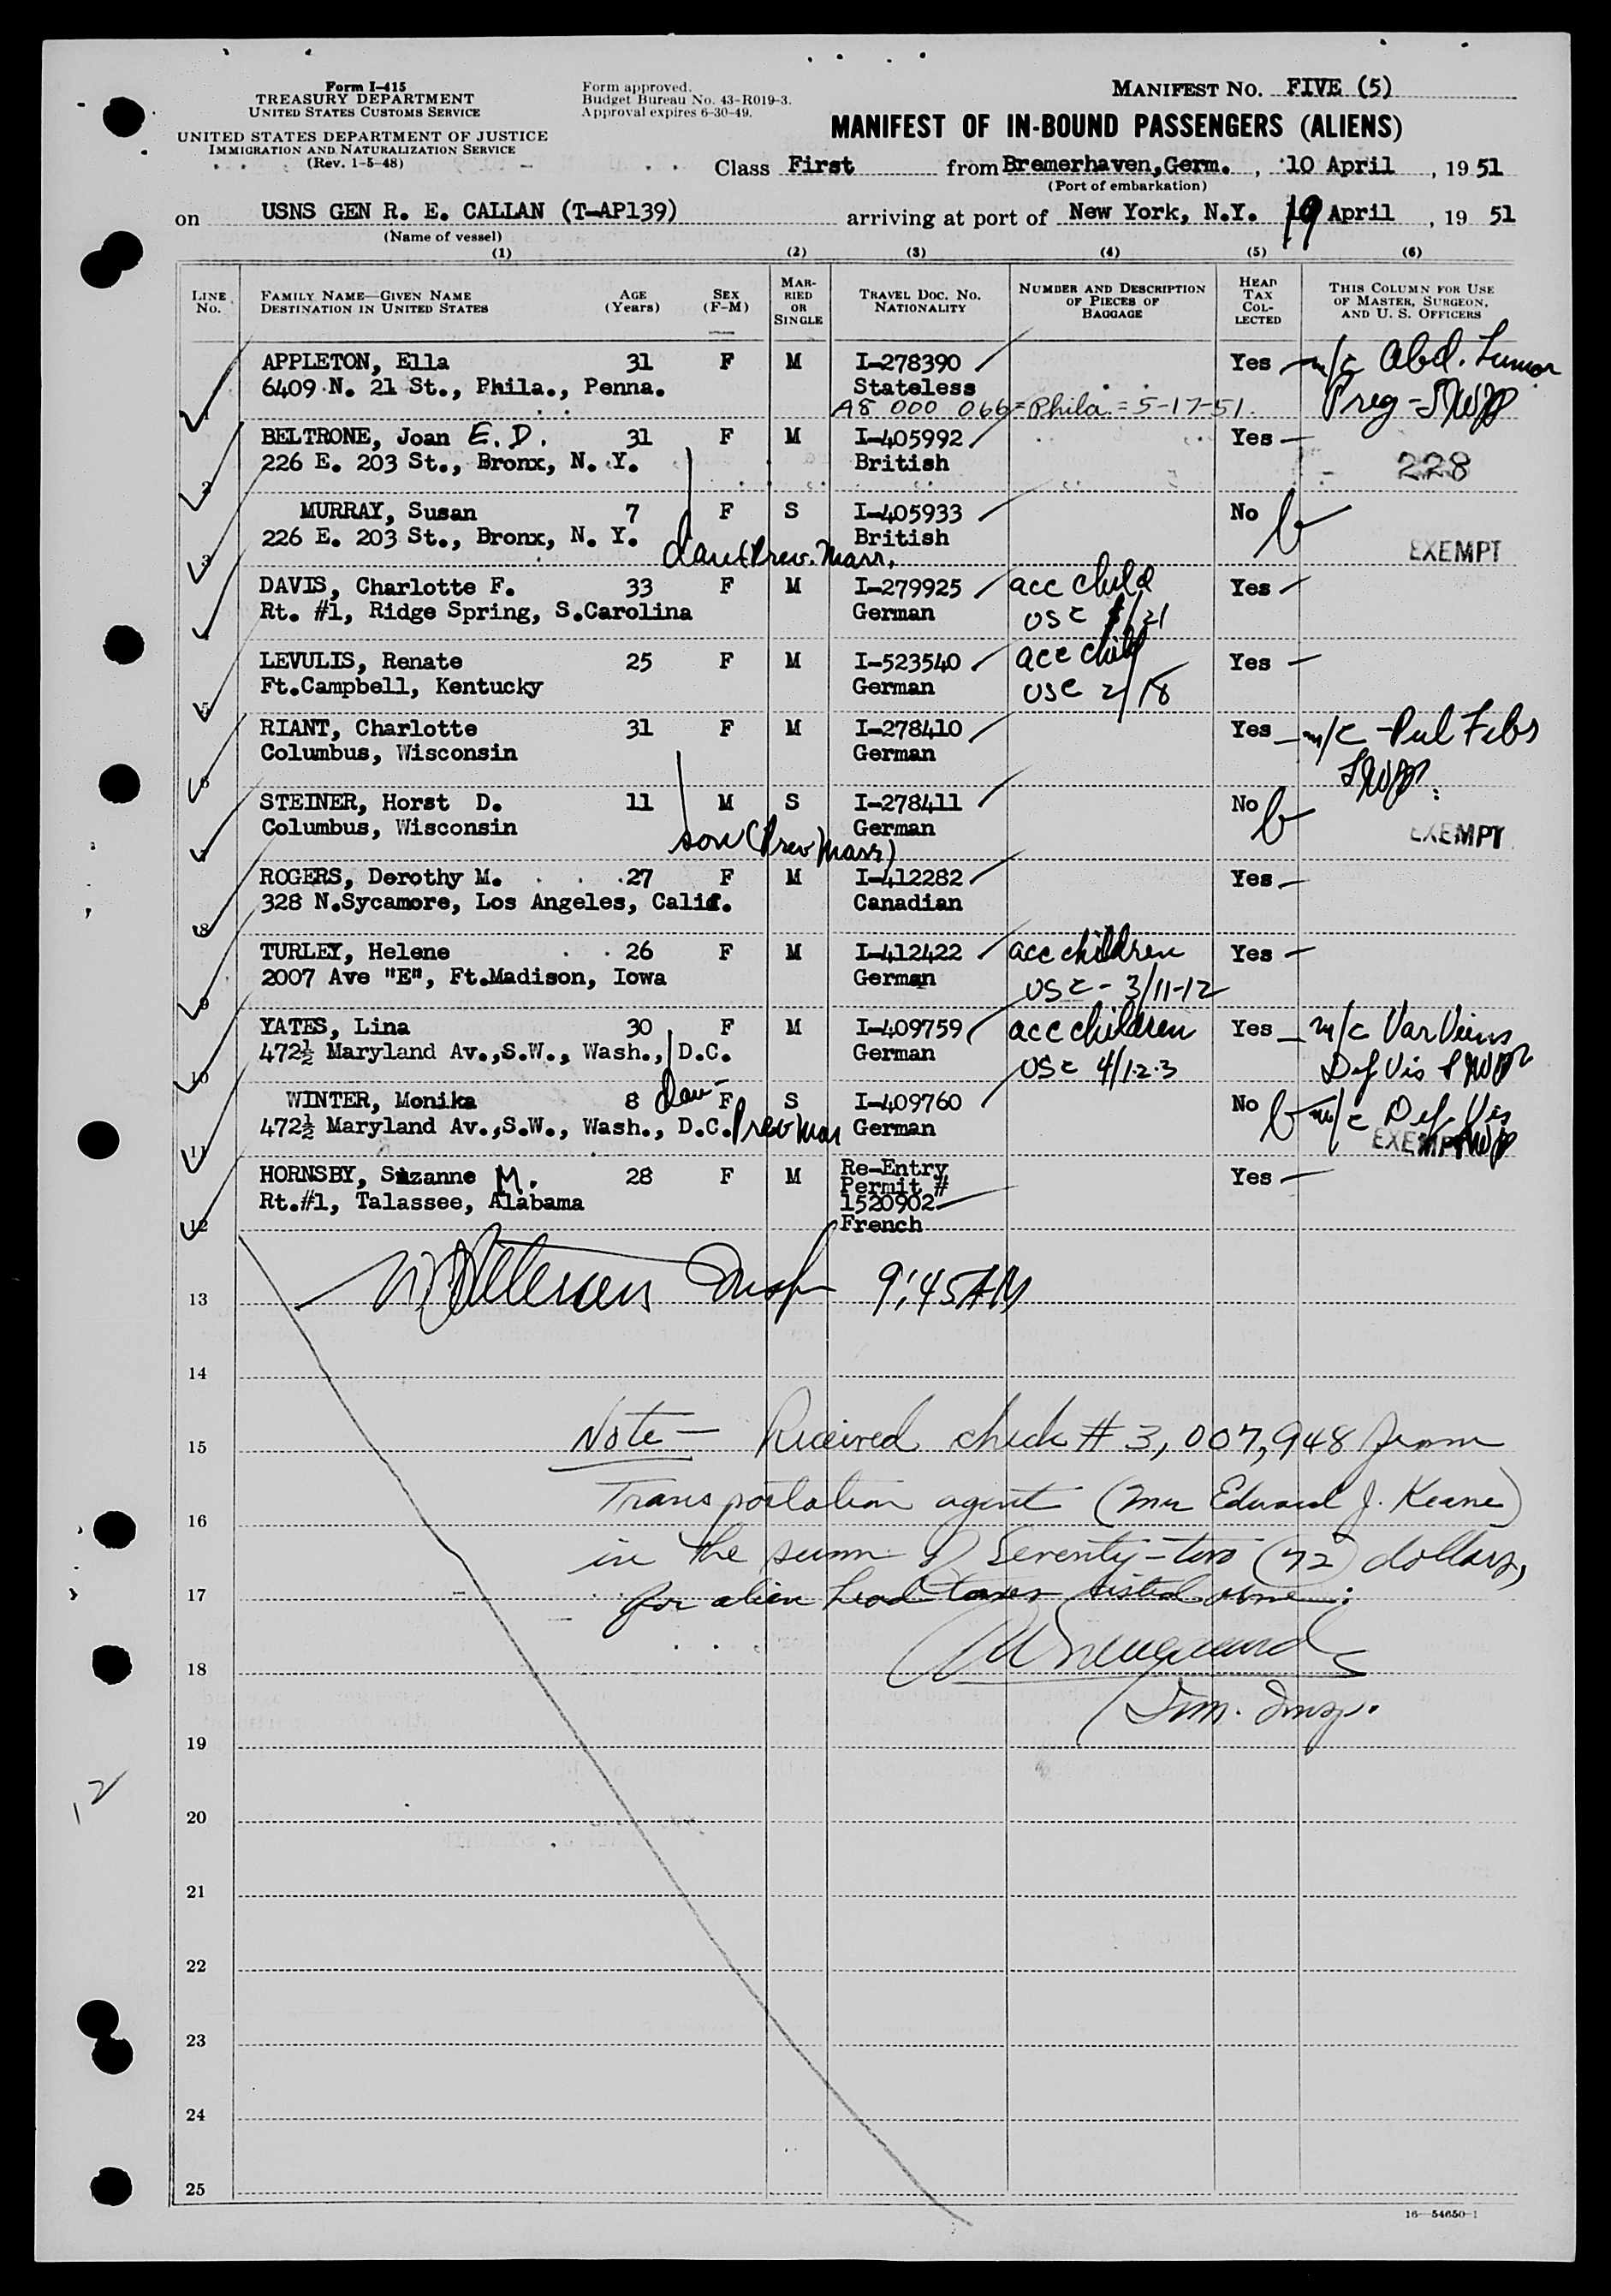 Form I-415
TREASURY DEPARTMENT
UNITED STATES CUSTOMS SERVICE
UNITED STATES DEPARTMENT OF JUSTICE
IMMIGRATION AND NATURALIZATION SERVICE
(Rev. 1-5-48)
Form approved.
Budget Bureau No. 43-R019-3.
Approval expires 6-30-49.
MANIFEST NO. FIVE (5)
MANIFEST OF IN-BOUND PASSENGERS (ALIENS)
Class First from Bremerhaven,Germ. , 10 April , 19 51
(Port of embarkation)
on USNS GEN R. E. CALLAN (T-AP139) arriving at port of New York, N.Y. 19 April , 19 51
(Name of vessel)
(1) (2) (3) (4) (5) (6)
LINE No.
FAMILY NAME—GIVEN NAME
DESTINATION IN UNITED STATES
AGE (Years)
SEX (F-M)
MARRIED OR SINGLE
TRAVEL DOC. NO. NATIONALITY
NUMBER AND DESCRIPTION OF PIECES OF BAGGAGE
HEAD TAX COLLECTED
THIS COLUMN FOR USE OF MASTER, SURGEON, AND U. S. OFFICERS
APPLETON, Ella 31 F M I-278390 Yes m/c Abd. Tumor
6409 N. 21 St., Phila., Penna. Stateless Preg -
1 A8 000 066 = Phila = 5-17-51.
BELTRONE, Joan E. D. 31 F M I-405992 Yes
226 E. 203 St., Bronx, N. Y. British 228
2
MURRAY, Susan 7 F S I-405933 No
226 E. 203 St., Bronx, N. Y. British EXEMPT
3 dau (Prev. Marr.
DAVIS, Charlotte F. 33 F M I-279925 acc child Yes
Rt. #1, Ridge Spring, S.Carolina German USC /21
4
LEVULIS, Renate 25 F M I-523540 acc child Yes
Ft.Campbell, Kentucky German USC 2/18
5
RIANT, Charlotte 31 F M I-278410 Yes m/c - Pul Fibs
Columbus, Wisconsin German
6
STEINER, Horst D. 11 M S I-278411 No
Columbus, Wisconsin German EXEMPT
7 son (Prev Marr)
ROGERS, Dorothy M. 27 F M I-412282 Yes
328 N.Sycamore, Los Angeles, Calif. Canadian
8
TURLEY, Helene 26 F M I-412422 acc children Yes
2007 Ave "E", Ft.Madison, Iowa German USC - 3/11-12
9
YATES, Lina 30 F M I-409759 acc children Yes m/c Var Veins
472½ Maryland Av.,S.W., Wash., D.C. German USC 4/1-2-3 Def Vis
10
WINTER, Monika 8 dau F S I-409760 No m/c Def Vis
472½ Maryland Av.,S.W., Wash., D.C. Prev Mar German EXEMPT
11
HORNSBY, Suzanne M. 28 F M Re-Entry Yes
Permit #
Rt.#1, Talassee, Alabama 1520902
12 French
13 Insp 9:45 AM
14
15 Note — Received check # 3,007,948 from
16 Transportation agent (Mr Edward J. Keane)
in the sum of Seventy-two (72) dollars,
17 for alien head taxes listed above.
18
Imm. Insp.
19
12
20
21
22
23
24
25
16—54650-1